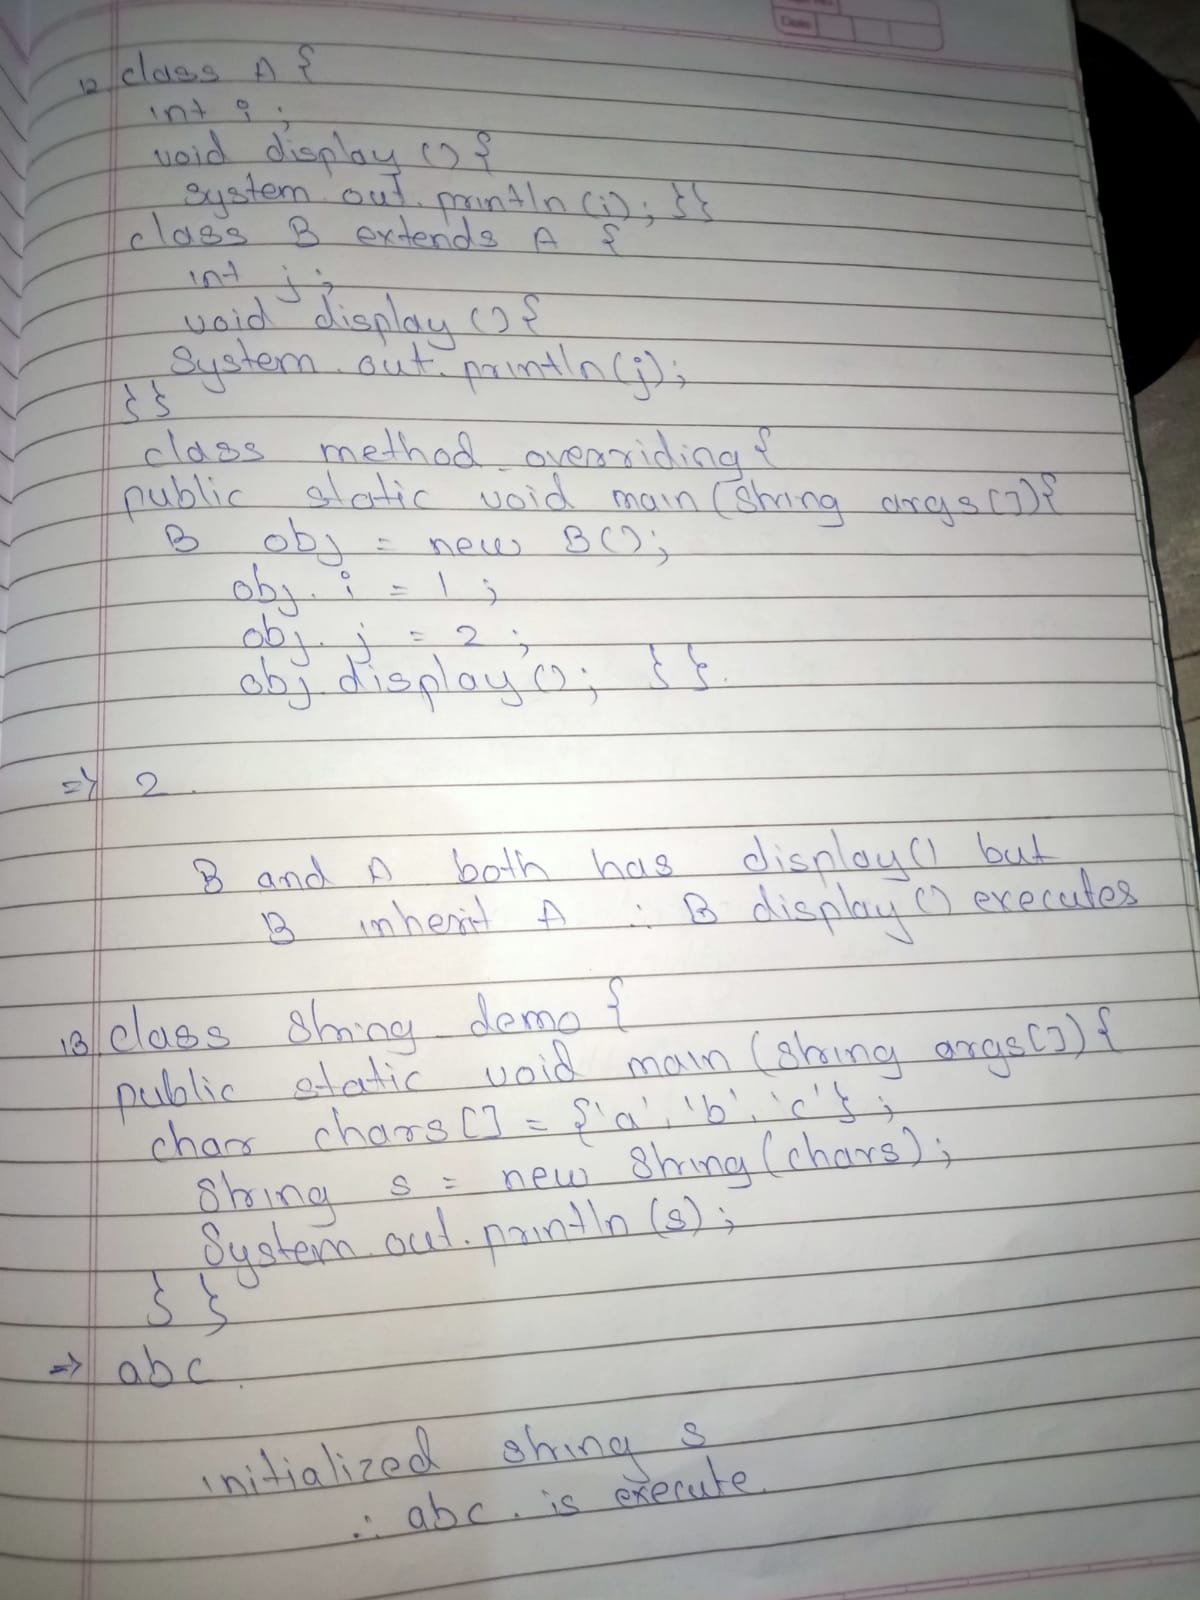 Date
12 class A {
int i ;
void display () {
System.out.println(i); }}
class B extends A {
int j ;
void display () {
System.out.println(j);
}}
class method_overriding {
public static void main (String args[]){
B obj = new B();
obj.i = 1 ;
obj.j = 2 ;
obj.display(); }}.
=> 2.
B and A both has display() but
B inherit A ∴ B display() executes
13 class String_demo {
public static void main (String args[]) {
char chars[] = {'a', 'b', 'c'} ;
String s = new String (chars);
System.out.println (s);
} }
=> abc.
initialized string s
∴ abc. is execute.